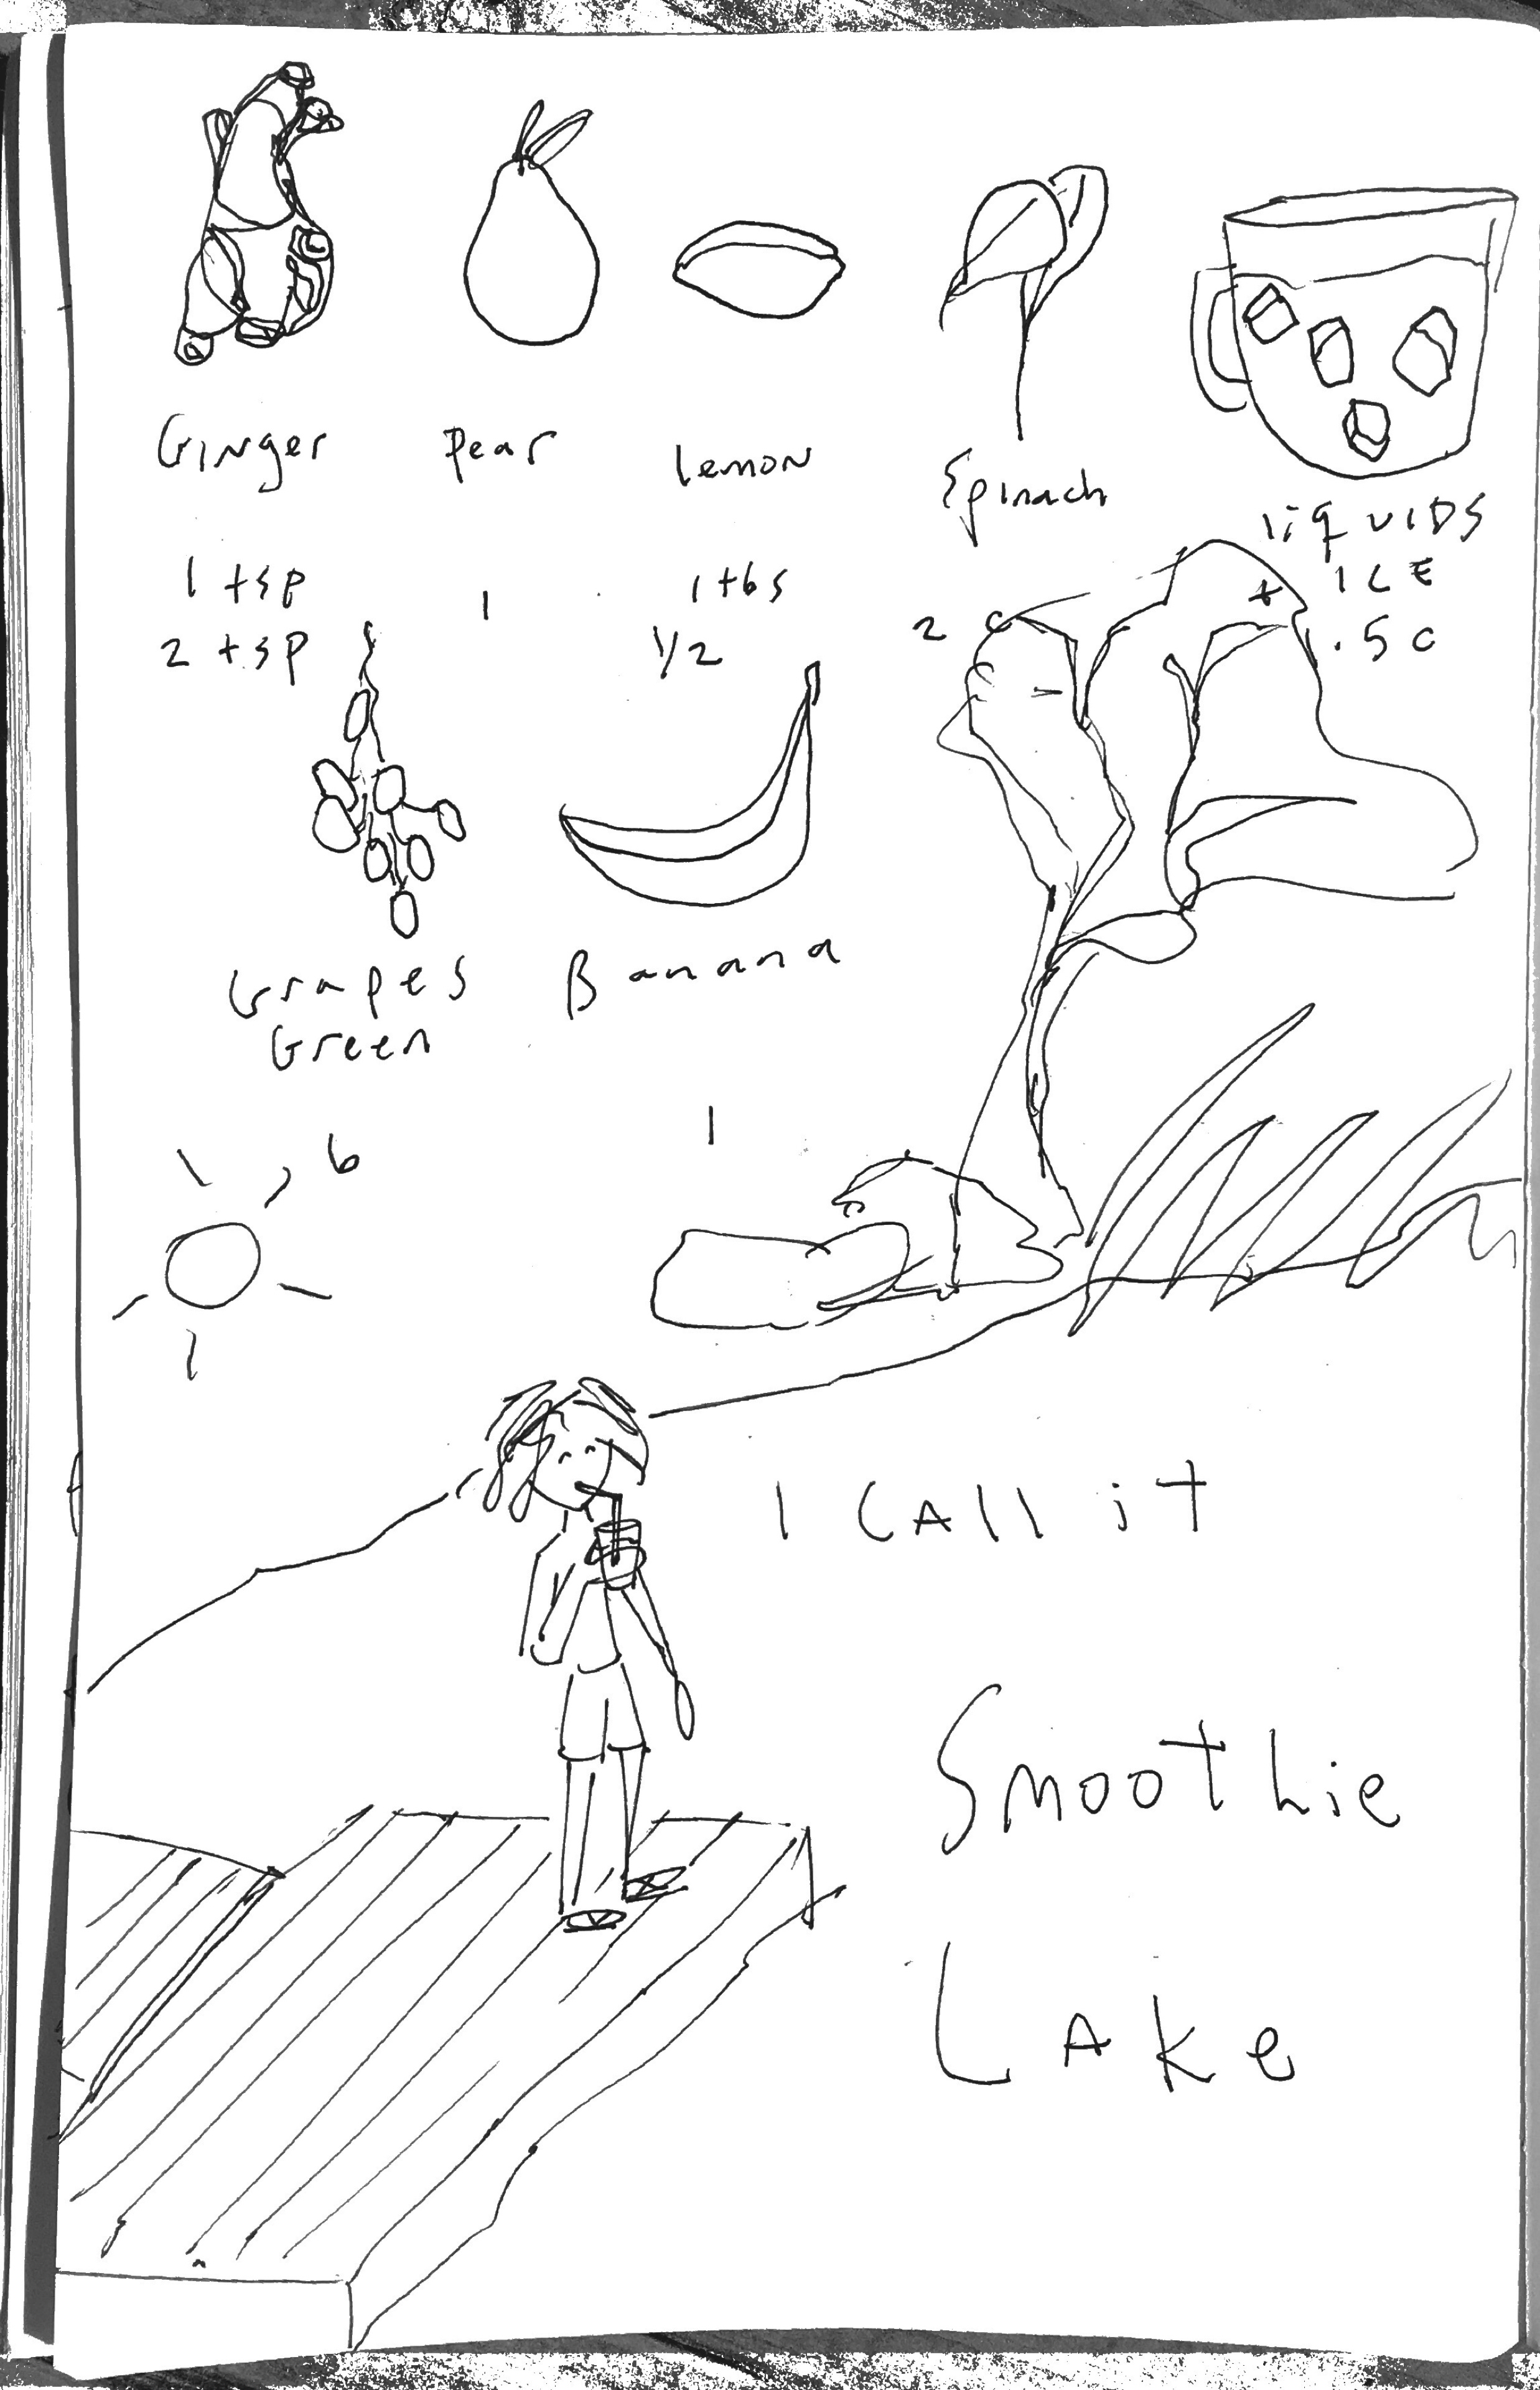 Ginger Pear lemon Spinach liquids
+ ICE
1 tsp 1 1 tbs 2 c .5 c
2 tsp 1/2
Grapes Banana
Green
6 1
I CAll it
Smoothie
LAke